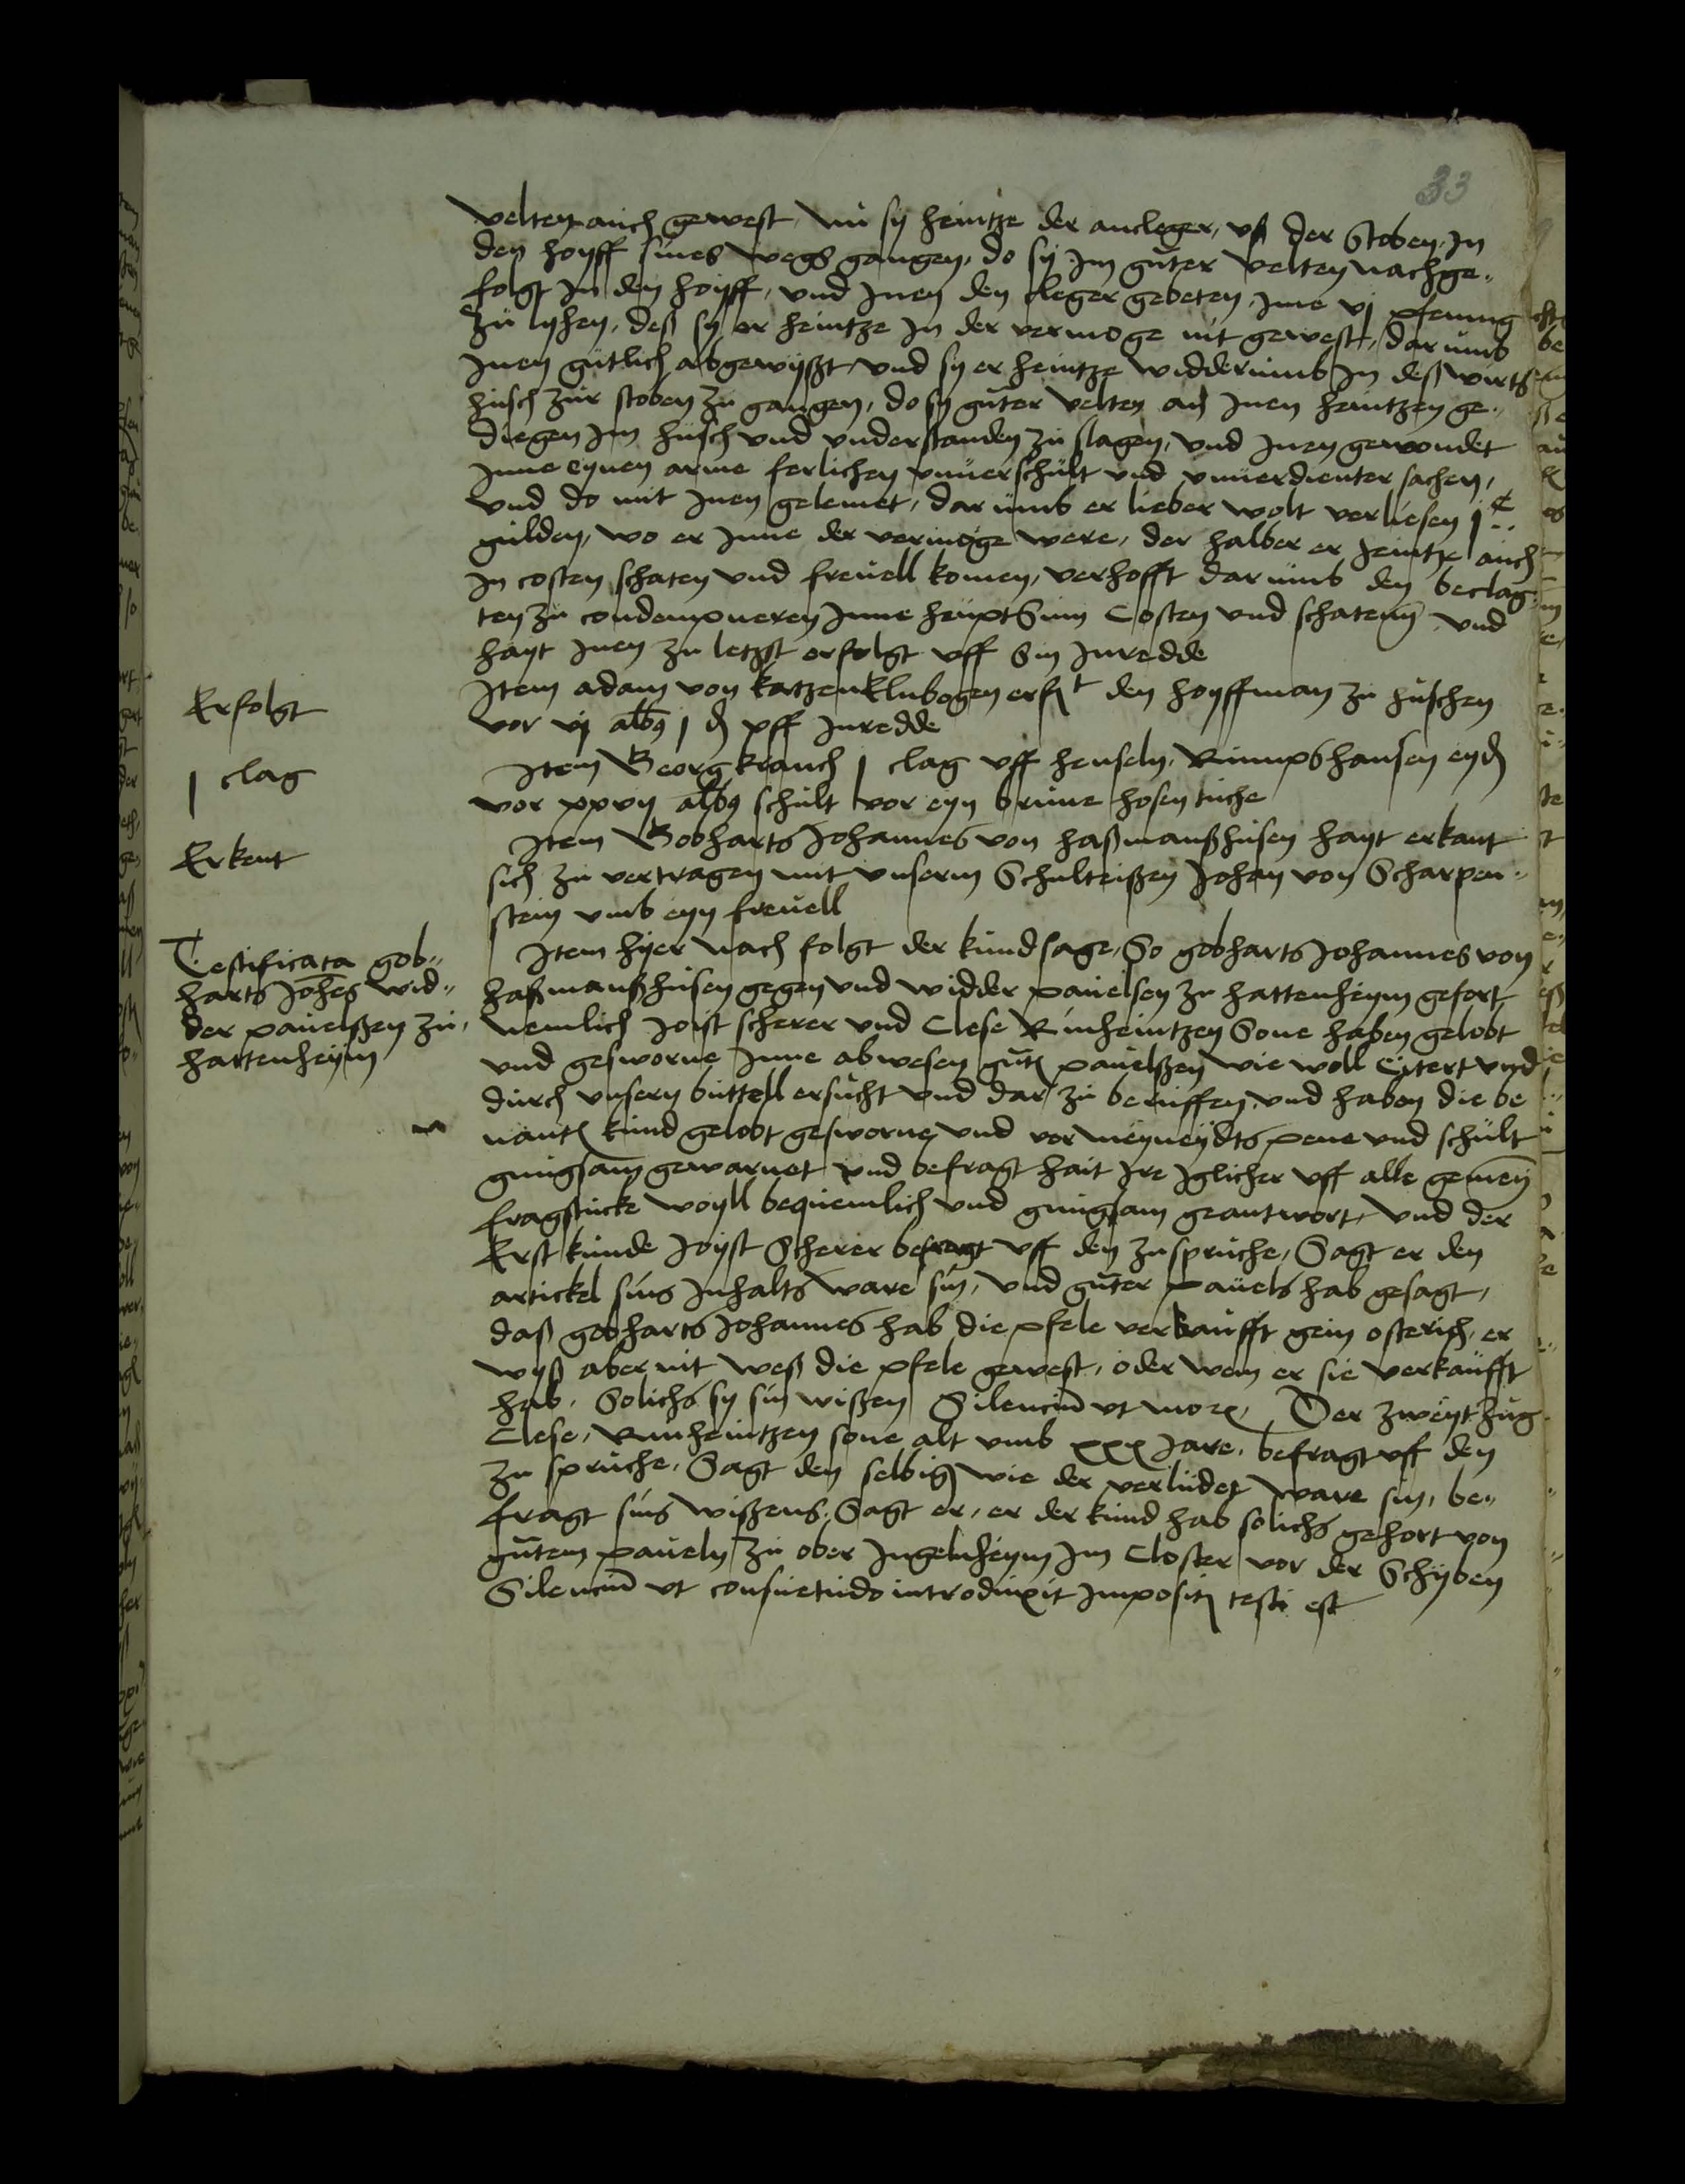 33
velten auch gewest, Nu sy heintze der ancleger, uß der Stoben, In
den hoyff sines wegs gangen, do sy Im guter velten nachge„
folgt In den hoyff, und Inen den cleger gebeten, Ime vj pfennig
zu lyhen, deß sy er heintze In der vermoge nit gewest, dar umb
Inen gutlich abgewyßt, und sy er heintze widderumb In deß wirts
husch zur stoben zu gangen, do sy guter velten an Inen heintzen ge„
diegen Im husch und understanden zu slagen, und Inen gewondet
Inne eynen arme ferlichen unuerschult und unuerdienter sachen,
und do mit Inen gelemet, dar umb er lieber wolt verliesen jc
gulden, wo er Inne der vermoge were, der halber er heintze auch
In costen schaten und frevell komen, verhofft dar umb den beclag„
ten zu condempneren Inne heuptsum Costen und schaten, und
hayt Inen zu letzst erfolgt uff Sin Inredde
Erfolgt
Item adam von katzenElnbogen erft den hoyffman zu huschen
vor vj albg j d uff Inredde
j clag
Item Georg kranch j clag uff henseln, Rumpshansen eyd
vor xxvij albg schult vor eyn brune hosen tuche
Erkent
Item Gobharts Johannes von haßmanßhusen hayt erkant
sich zu vertragen mit unserm Schulteißen Johan von Scharpen„
stein umb eyn frevell
Testificata gob„
harts Johes wid„
der pauelßen zu
hattenheym
Item hyer nach folgt der kundsage, So gobharts Johannes von
haßmanßhusen gegen und widder pauelsen zu hattenheym gefort
nemlich Joist scherer und Clese Rinheintzen Sone haben gelobt
und gesworne Inne abwesen gut pauelßen wie woll Citert und
durch unsern buttell ersucht und dar zu beruffen, und haben die be
nant kund gelobt gesworne, und vor meyneydts pene und schult
gnugsam gewarnet und befragt hait Ire Iglicher uff alle gemeyn
fragstucke woyll bequemlich und gnugsam geantwort, Und der
Erst kunde Joyst Scherer befragt uff den zu spruche, Sagt er den
artickel sins Inhalts ware sin, und guter pauels hab gesagt,
daß gobharts Johannes hab die pfele verkaufft gein osterich, er
wyß aber nit weß die pfele gewest, oder wem er sie verkaufft
hab, Solichs sy sin wißen Silenciu ut more, Der zweyt zug
Clese, Rinheintzen sone alt umb xxx Jare, befragt uff den
zu spruche, Sagt den selbig wie der verludet ware sin, be„
fragt sins wißens, Sagt er, er der kund hab solichs gehort von
gutem paueln zu ober Ingelnheym Im Closter vor der Schyben
Silenciu ut consuetudo introduxit Imposit testi est